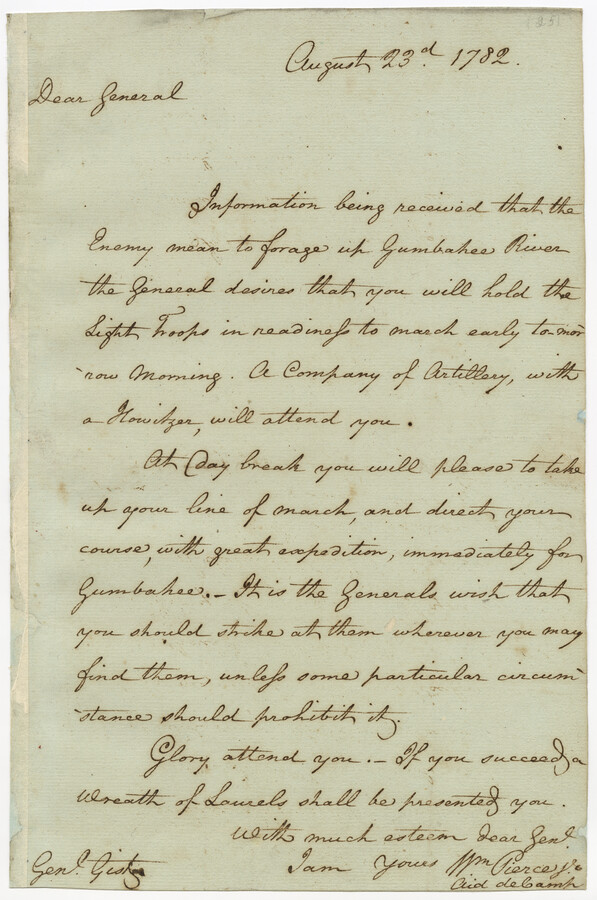 August 23d. 1782.
Dear General
Information being received that the
Enemy mean to forage up Gumbahee River
the General desires that you will hold the
Light Troops in readiness to march early to-mor
-row Morning. A Company of Artillery, with
a Howitzer, will attend you.
At Day break you will please to take
up your line of march, and direct your
course, with great expedition, immediately for
Gumbahee. - It is the Generals wish that
you should strike at them wherever you may
find them, unless some particular circum
-stance should prohibit it.
Glory attend you. - If you succeed, a
Wreath of Laurels shall be presented you.
With much esteem dear Genl.
I am yours Wm Pierce Jr
Genl. Gist
Aid de Camp